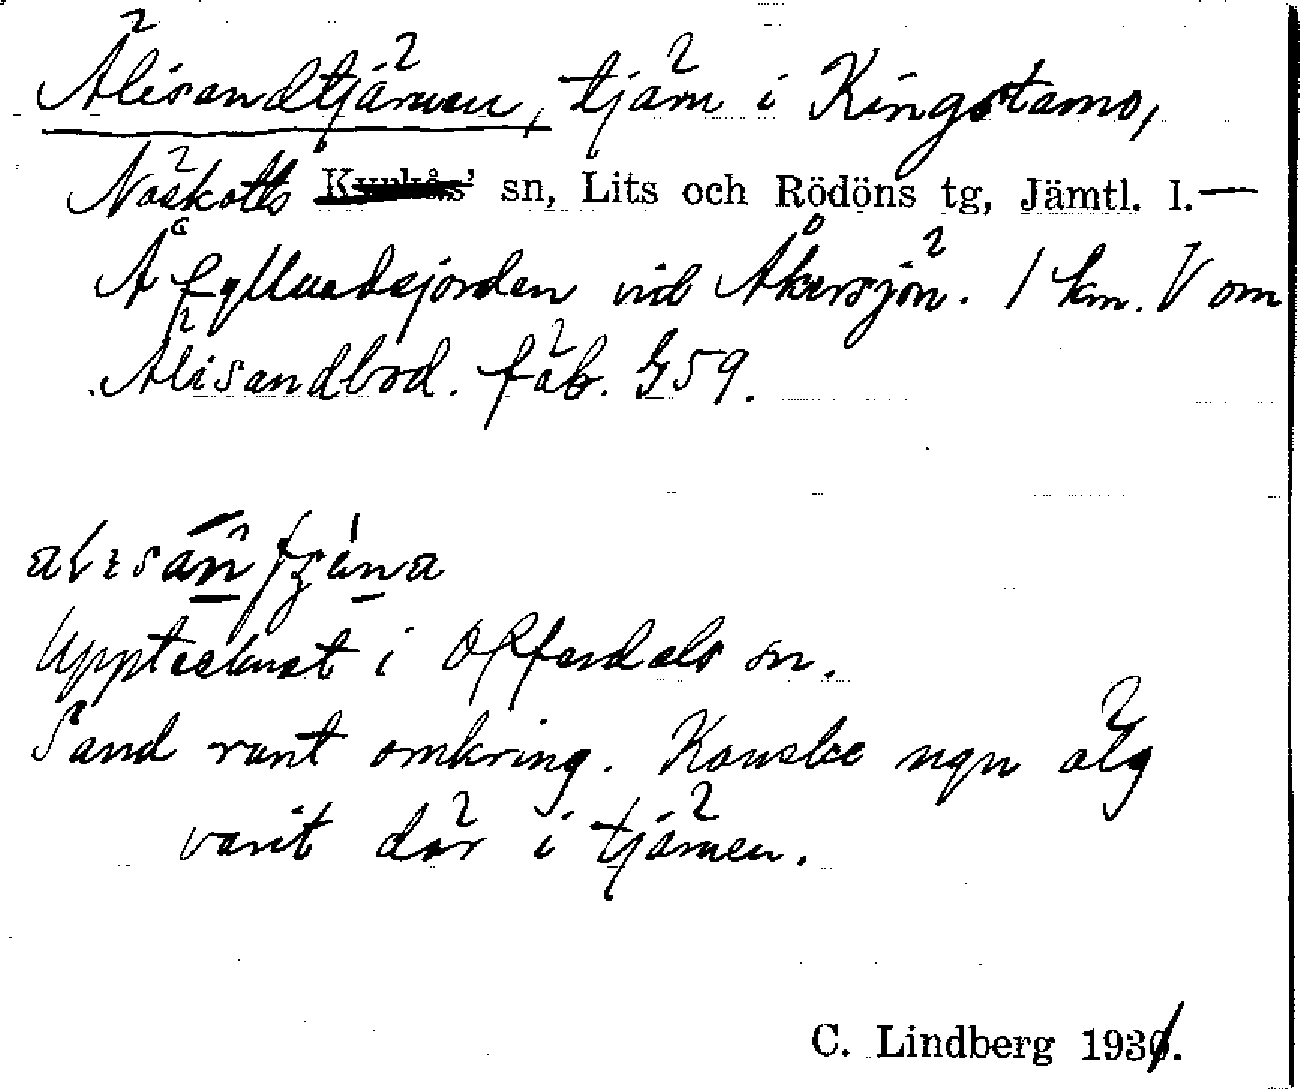 Älisandtjärnen, tjärn i Kingstamo,
Näskotts Kyrkås' sn, Lits och Rödöns tg, Jämtl. l. —
Å fyllnadsjorden vid Åkersjön. 1 km. V om
Älisandbod. fäb. G59.
Upptecknat i Offerdals sn.
Sand runt omkring. Kanske ngn älg
varit där i tjärnen.
C. Lindberg 1931.